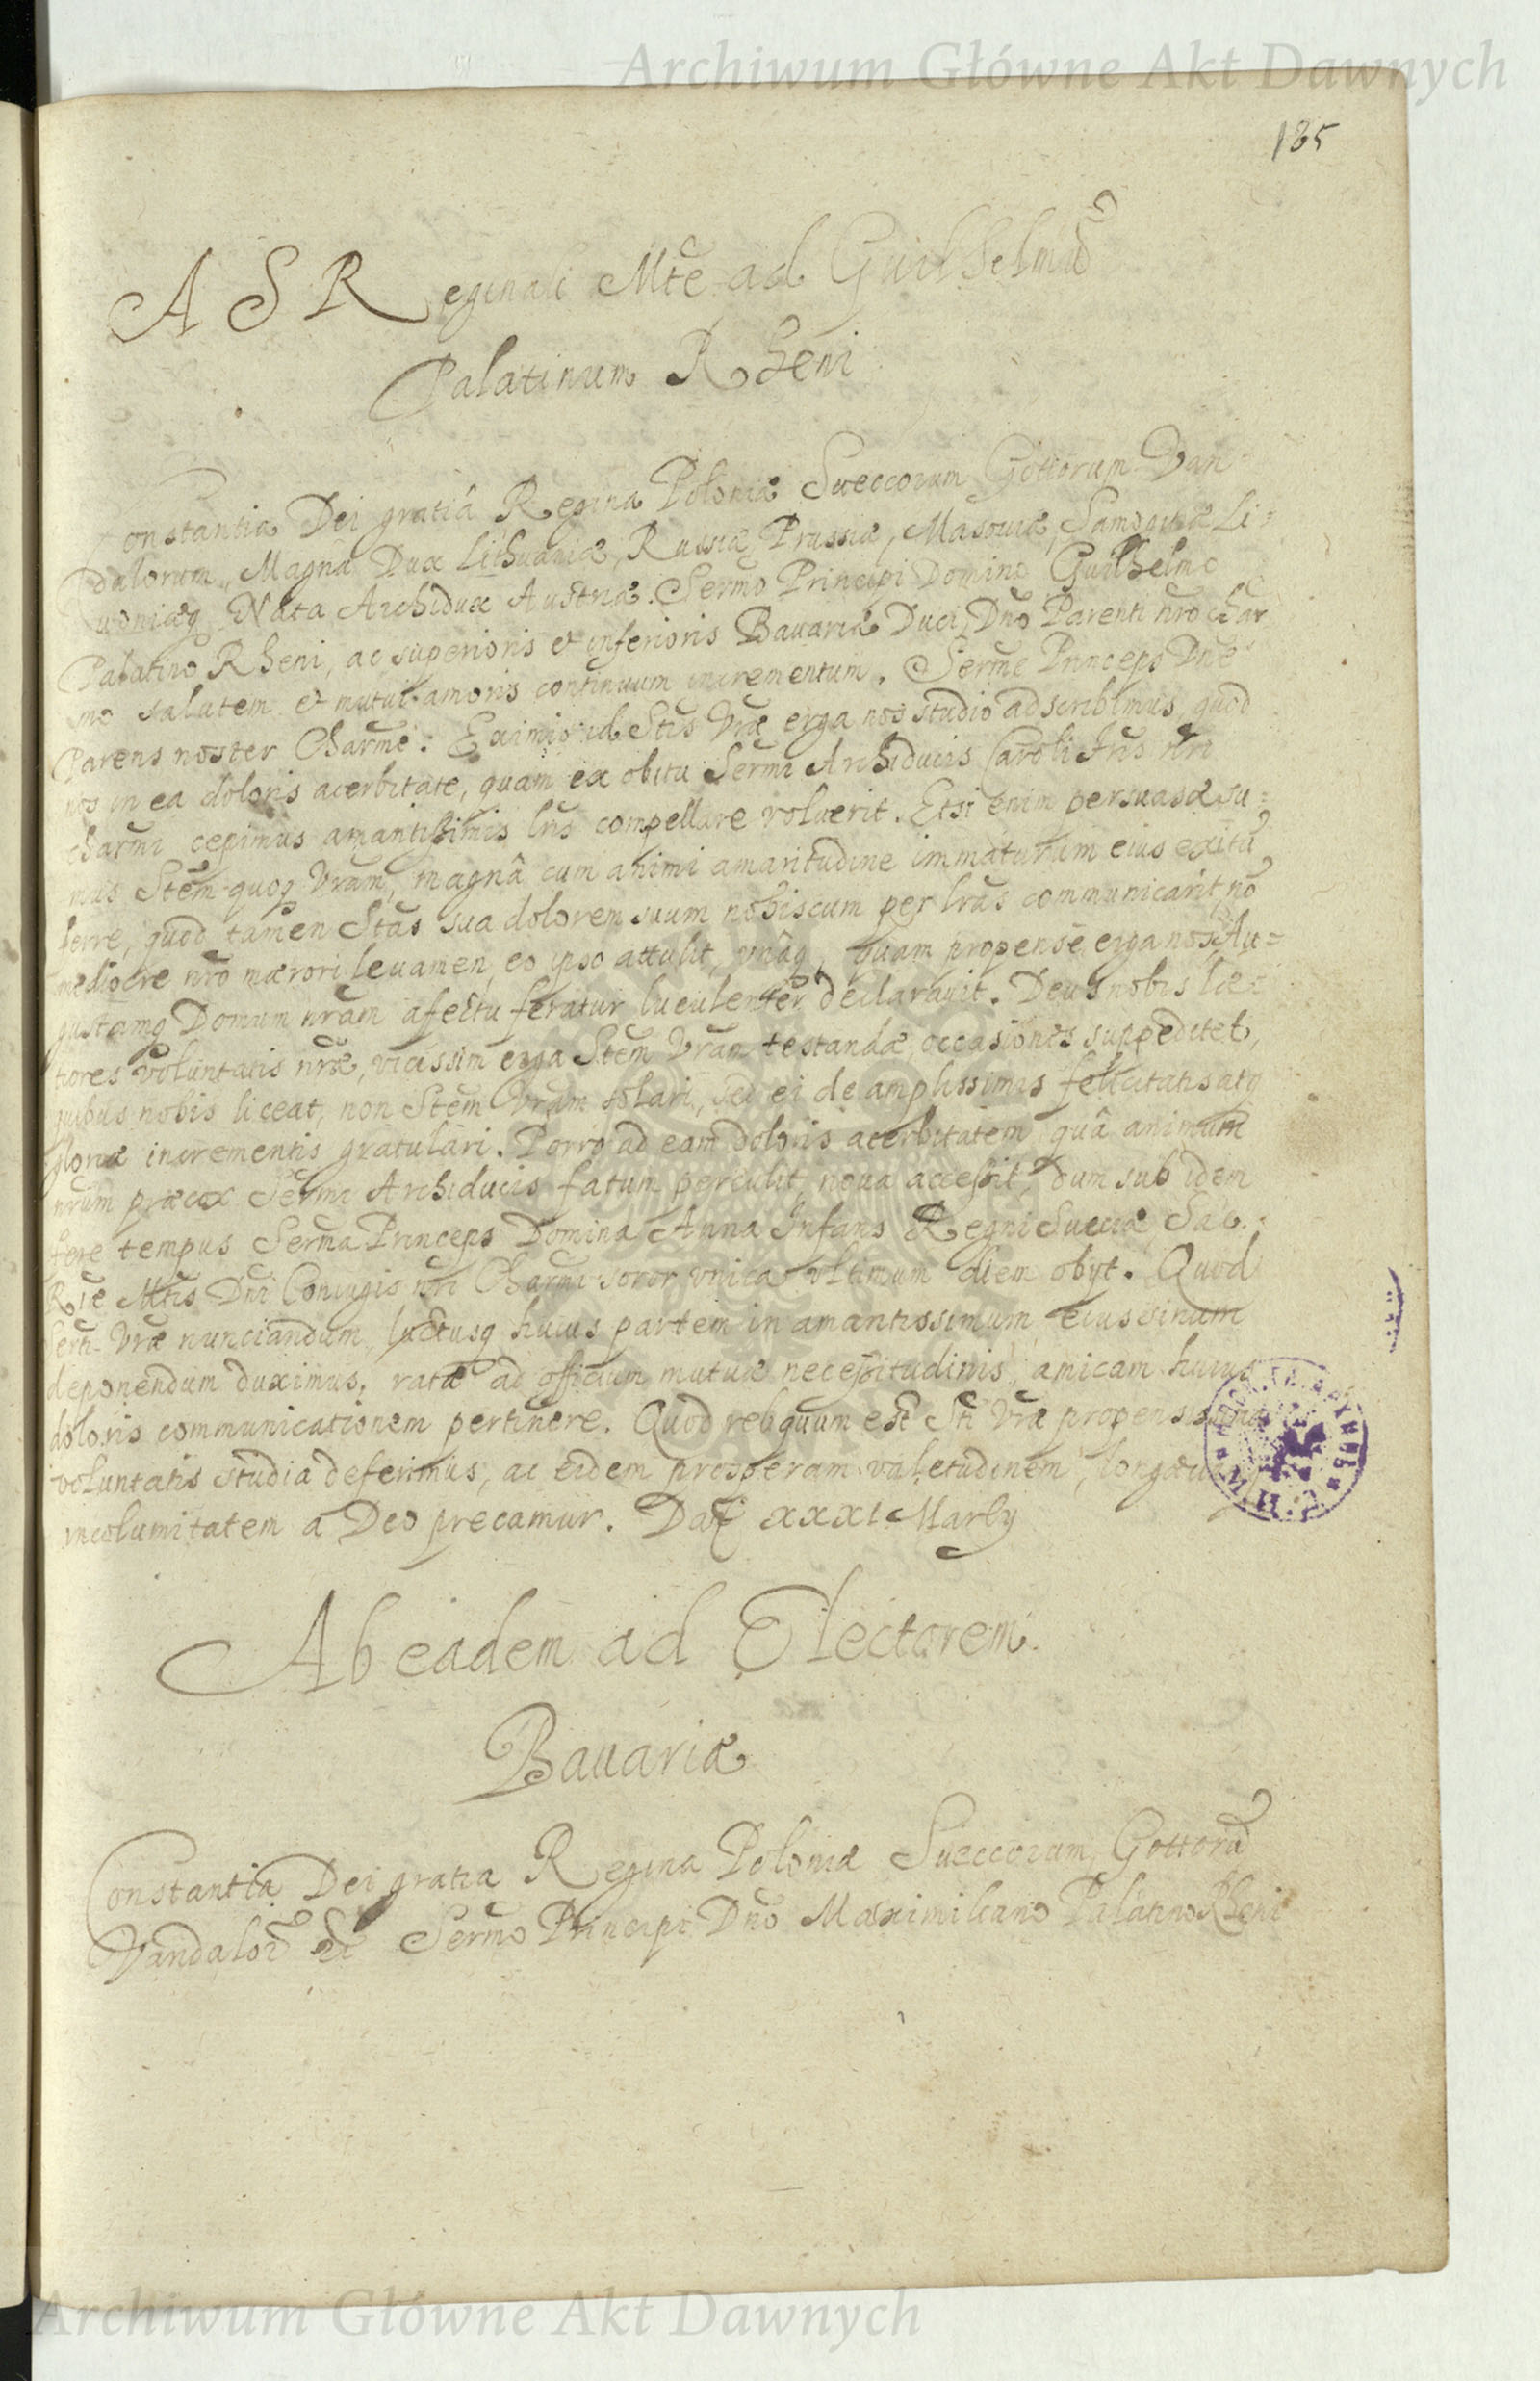 Archiwum Główne Akt Dawnych
185
A S Reginali Mte ad Guilhelmũ
Palatinum Rheni
Constantia Dei gratiâ Regina Poloniæ Sueccorum Gottorum Van
dalorum, Magna Dux Lithuaniæ, Russiæ, Prussiæ, Masouiæ, Samogitiæ Li=
uoniæq Nata Archidux Austriæ. Sermo Principi Domino Guilhelmo
Palatino Rheni, ac superioris et inferioris Bauariæ Duci, Dno Parenti nro Char
mo salutem et mutui amoris continuum incrementum. Serme Princeps Dne
Parens noster Charme. Eximio id Stis Vræ erga nos studio adscribimus, quod
nos in ea doloris acerbitate, quam ex obitu Sermi Archiducis Caroli Fris nri
charmi cepimus amantissimis lris compellare voluerit. Etsi enim persuasæ su=
mus Stem quoq Vram, magnâ cum animi amaritudine immaturum eius exitũ
ferre, quod tamen Stas sua dolorem suum nobiscum per lras communicarit, nõ
mediocre nro mærori leuamen, eo ipso attulit, vnâq, quam propense erga nos, Au=
gustamq Domum nram affectu feratur luculenter declarauit. Deus nobis læ=
tiores voluntatis nræ, vicissim erga Stem Vram testandæ, occasiones suppeditet,
quibus nobis liceat, non Stem Vram solari, sed ei de amplissimis felicitatis atq
gloriæ incrementis gratulari. Porro ad eam doloris acerbitatem quâ animum
nrum præcox Sermi Archiducis fatum perculit, noua accessit, dum sub idem
fere tempus Serma Princeps Domina Anna Infans Regni Sueciæ, Sac.
Riæ Mtis Dni Coniugis nri Charmi soror vnica vltimum diem obijt. Quod
Serti Vræ nunciandum, luctusq huius partem in amantissimum eius sinum
deponendum duximus. ratæ ad officium mutuæ necessitudinis, amicam huius
doloris communicationem pertinere. Quod reliquum est Sti Vræ propensissimæ
voluntatis studia deferimus, ac eidem prosperam valetudinem, longæuam
incolumitatem a Deo precamur. Dat XXXI Martij
Ab eadem ad Electorem
Bauariæ
Constantia Dei gratia Regina Poloniæ Sueccorum, Gottorũ
Vandalorũ etc Sermo Principi Dno Maximiliano Palatino Rheni
Archiwum Główne Akt Dawnych